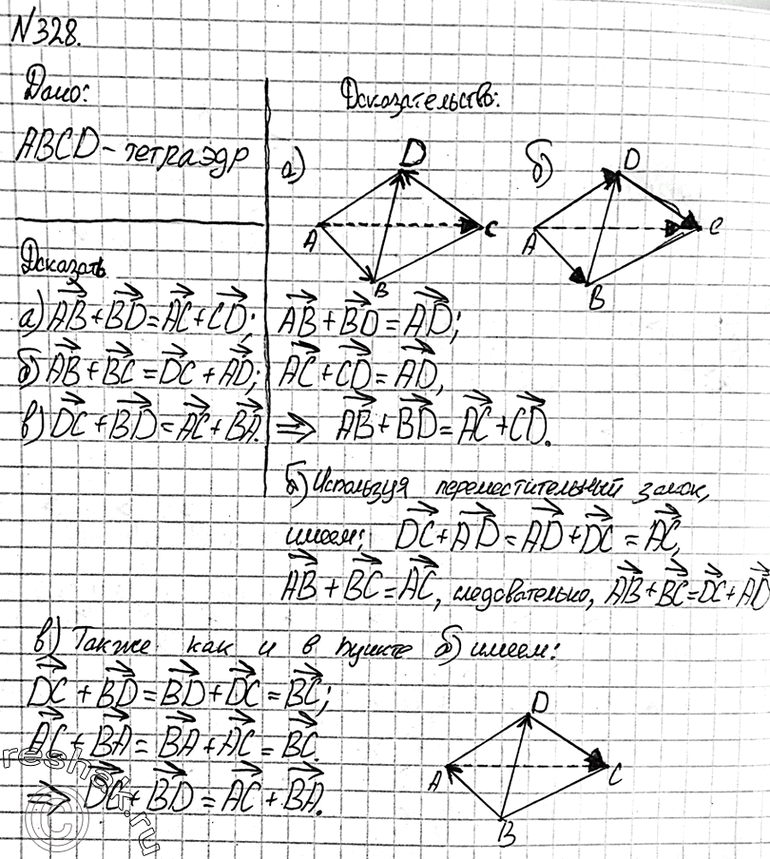 N328.
Дано:
ABCD - тетраэдр
Доказать
а) AB + BD = AC + CD;
б) AB + BC = DC + AD;
в) DC + BD = AC + BA.
Доказательство:
а)
D
A
C
B
б)
D
A
C
B
AB + BD = AD;
AC + CD = AD,
⇒ AB + BD = AC + CD.
б) Используя переместительный закон,
имеем; DC + AD = AD + DC = AC,
AB + BC = AC, следовательно, AB + BC = DC + AD
в) Также как и в пункте б) имеем:
DC + BD = BD + DC = BC;
AC + BA = BA + AC = BC.
⇒ DC + BD = AC + BA.
D
A
C
B
reshak.ru
©